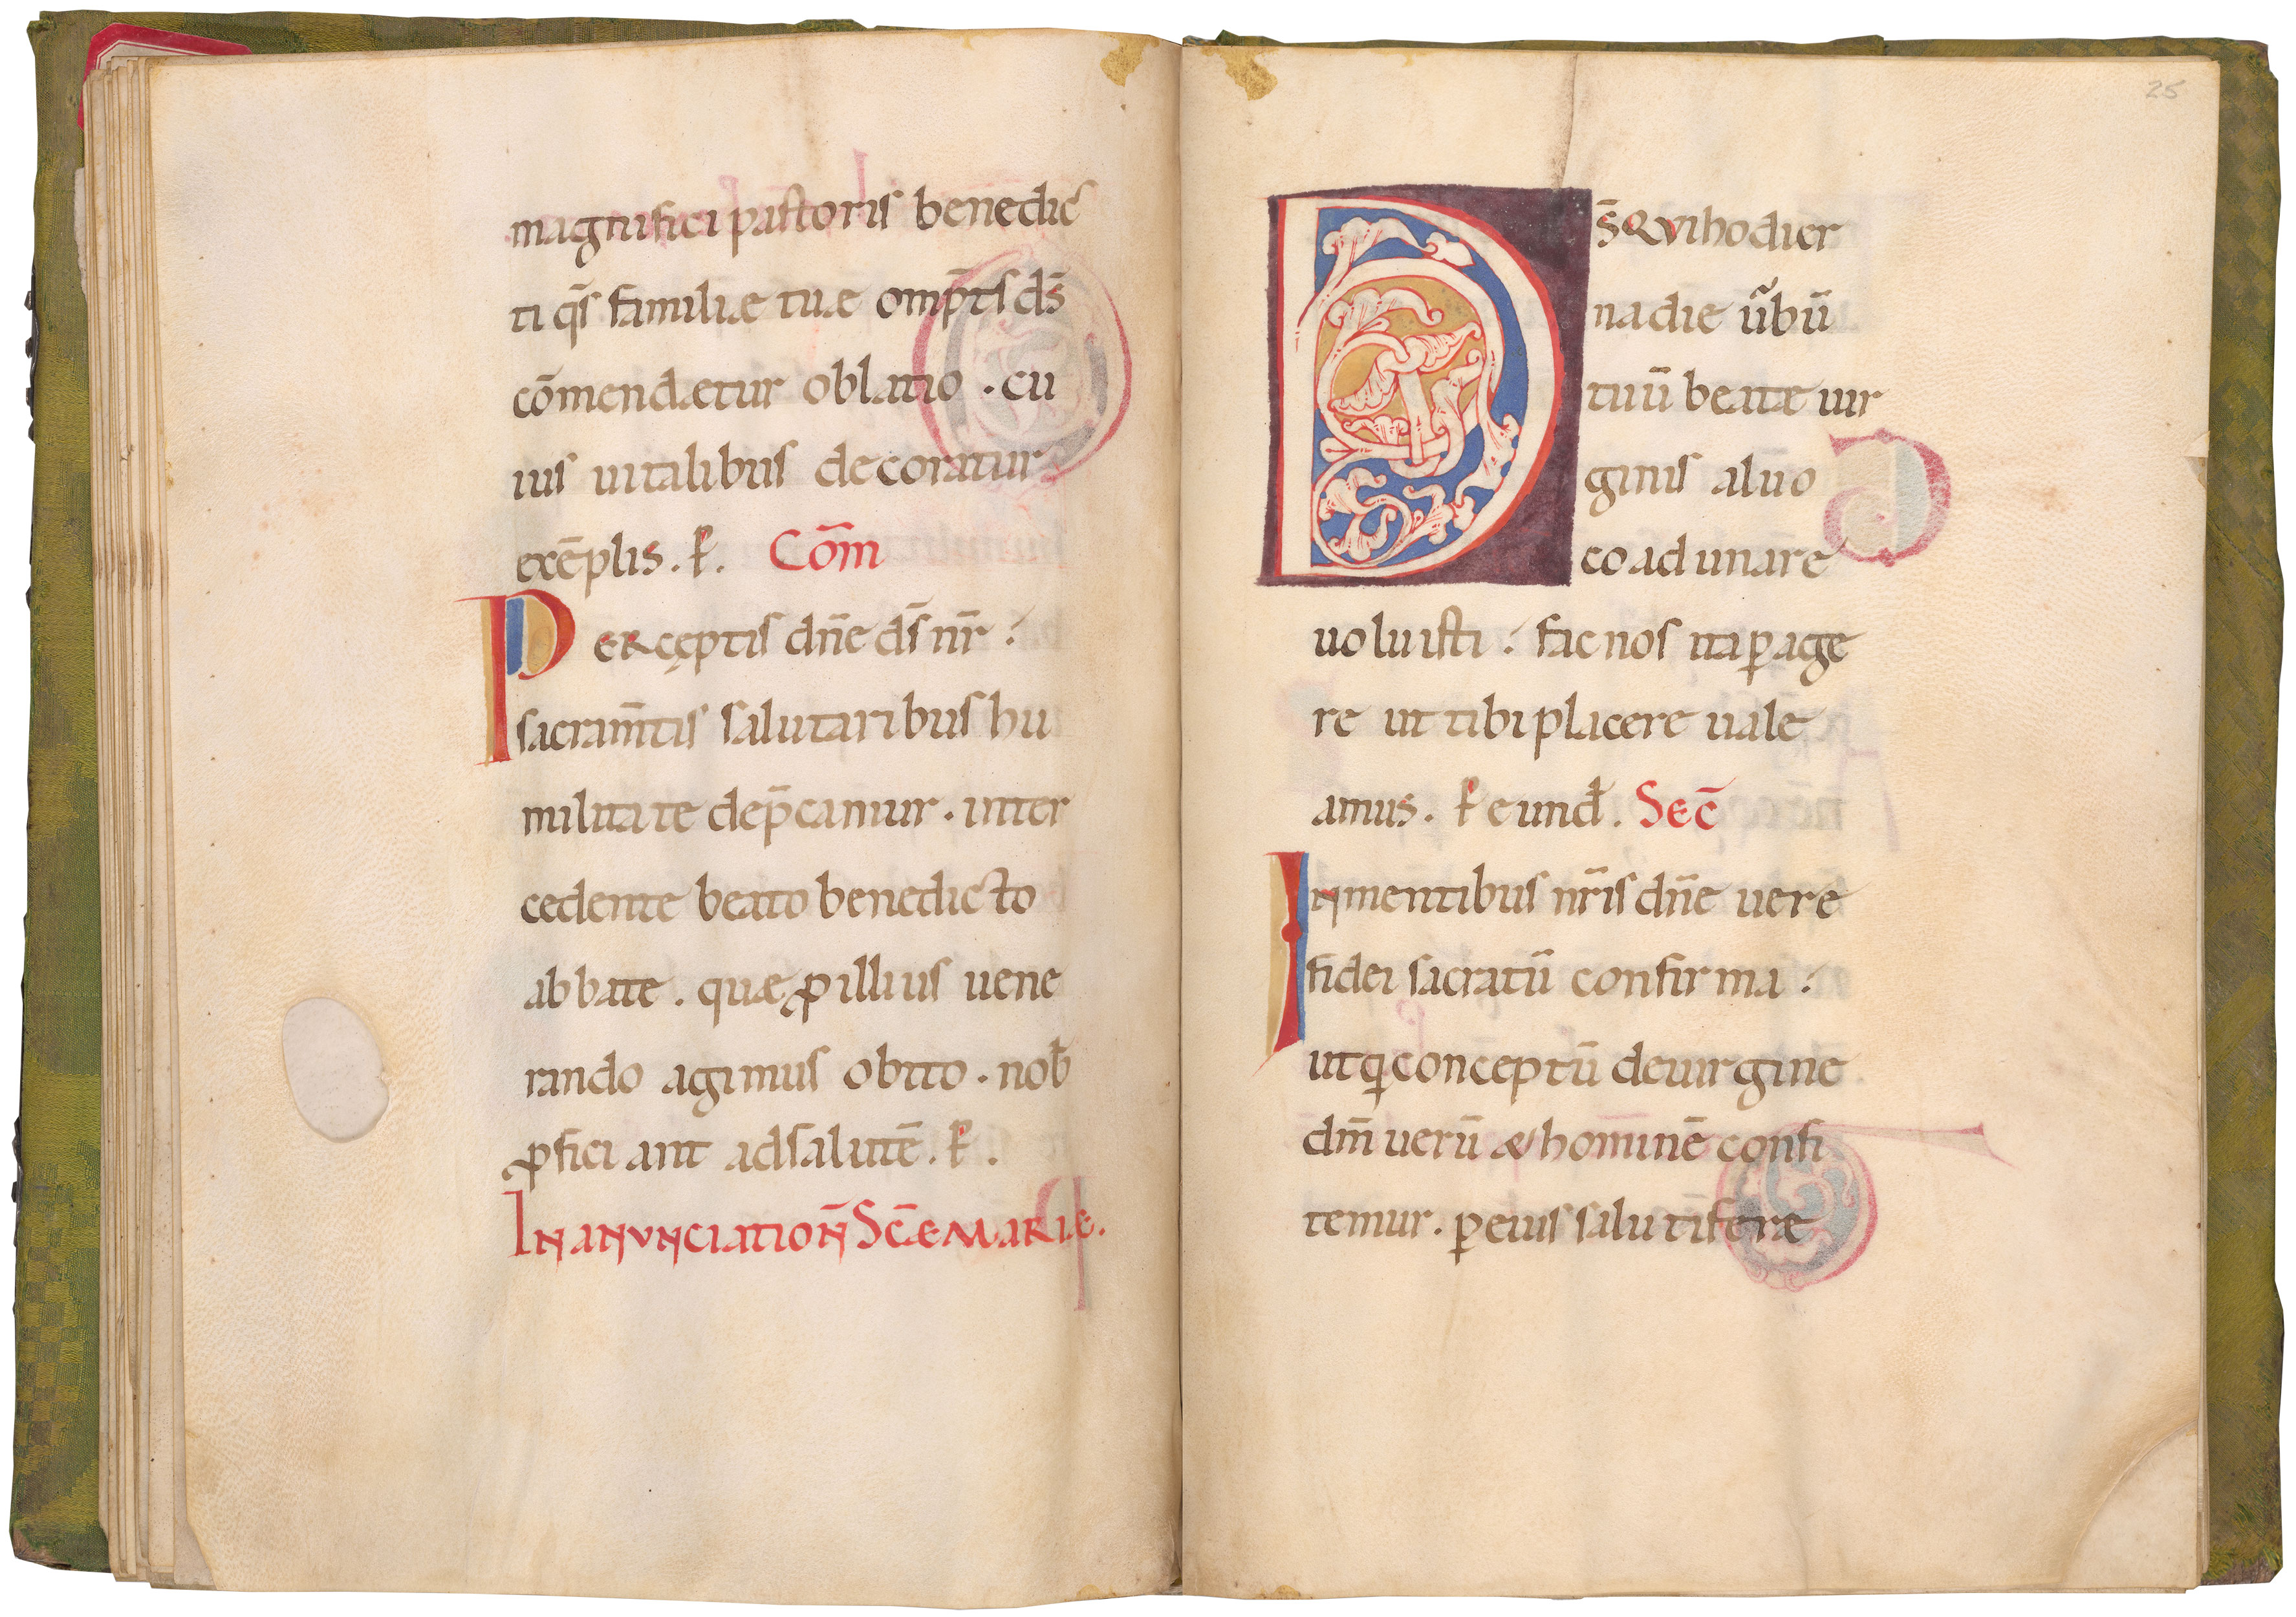 magnifici pastoris benedic
ti q̄s familiæ tuæ omp̄ts ds̄
cōmendætur oblatio · cu
ius uitalibus decoratur
exēplis. P̱. Cōm
PERcęptis dn̄e ds̄ nr̄ :
sacram̄tis salutaribus hu
militate dep̄camur · inter
cedente beato benedicto
abbate . quæ ꝓ illius uene
rando agimus obito · nob̄
ꝓficiant ad salutē. P̱.
IN ANVNCIATION̄ SC̄E MARIE.
25
DS̄ QVI hodier
na die ūbū
tuū beatæ uir
ginis aluo
coadunare
uoluisti : fac nos ita ꝑage
re ut tibi placere uale
amus. P̱ eund̄. Sec̄
IN mentibus nr̄is dn̄e uere
fidei sacratū confirma :
ut qi conceptū de uirgine
dm̄ uerū & hominē confi
temur. ꝑ eius salutīferæ